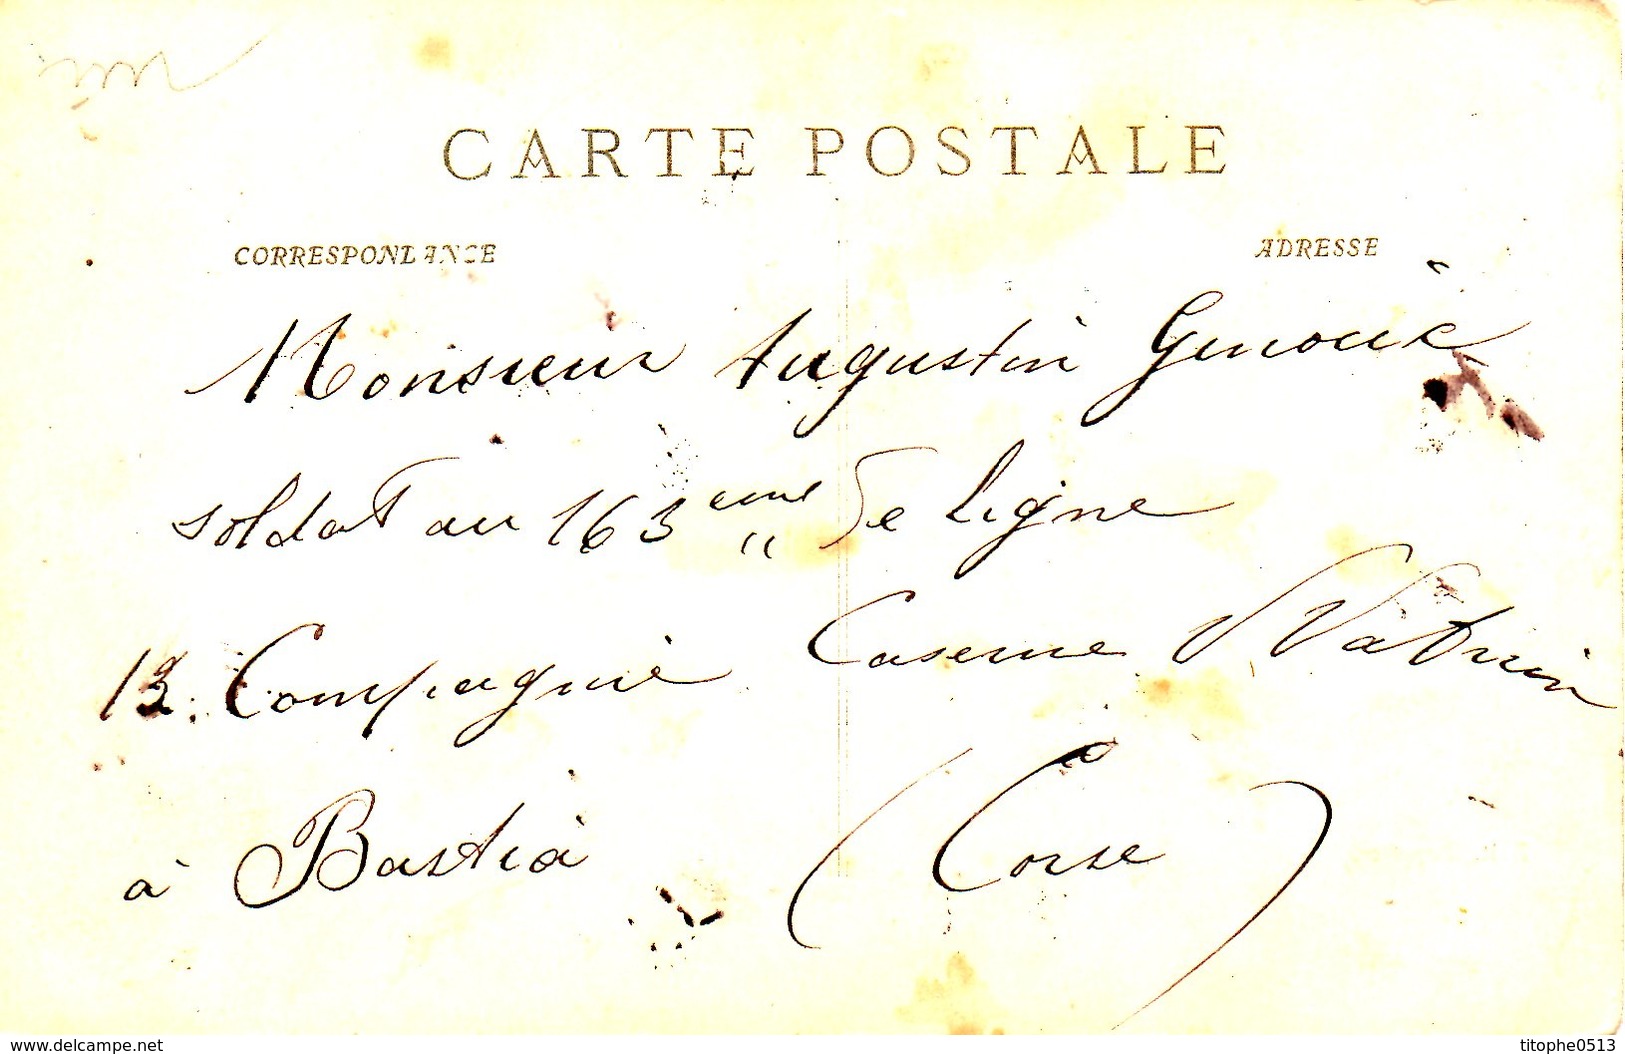 CARTE POSTALE
CORRESPONDANCE ADRESSE
Monsieur Augustin
soldat au 163eme de ligne
Compagnie Caserne Watrin
à Bastia (Corse)
www.delcampe.net titophe0513